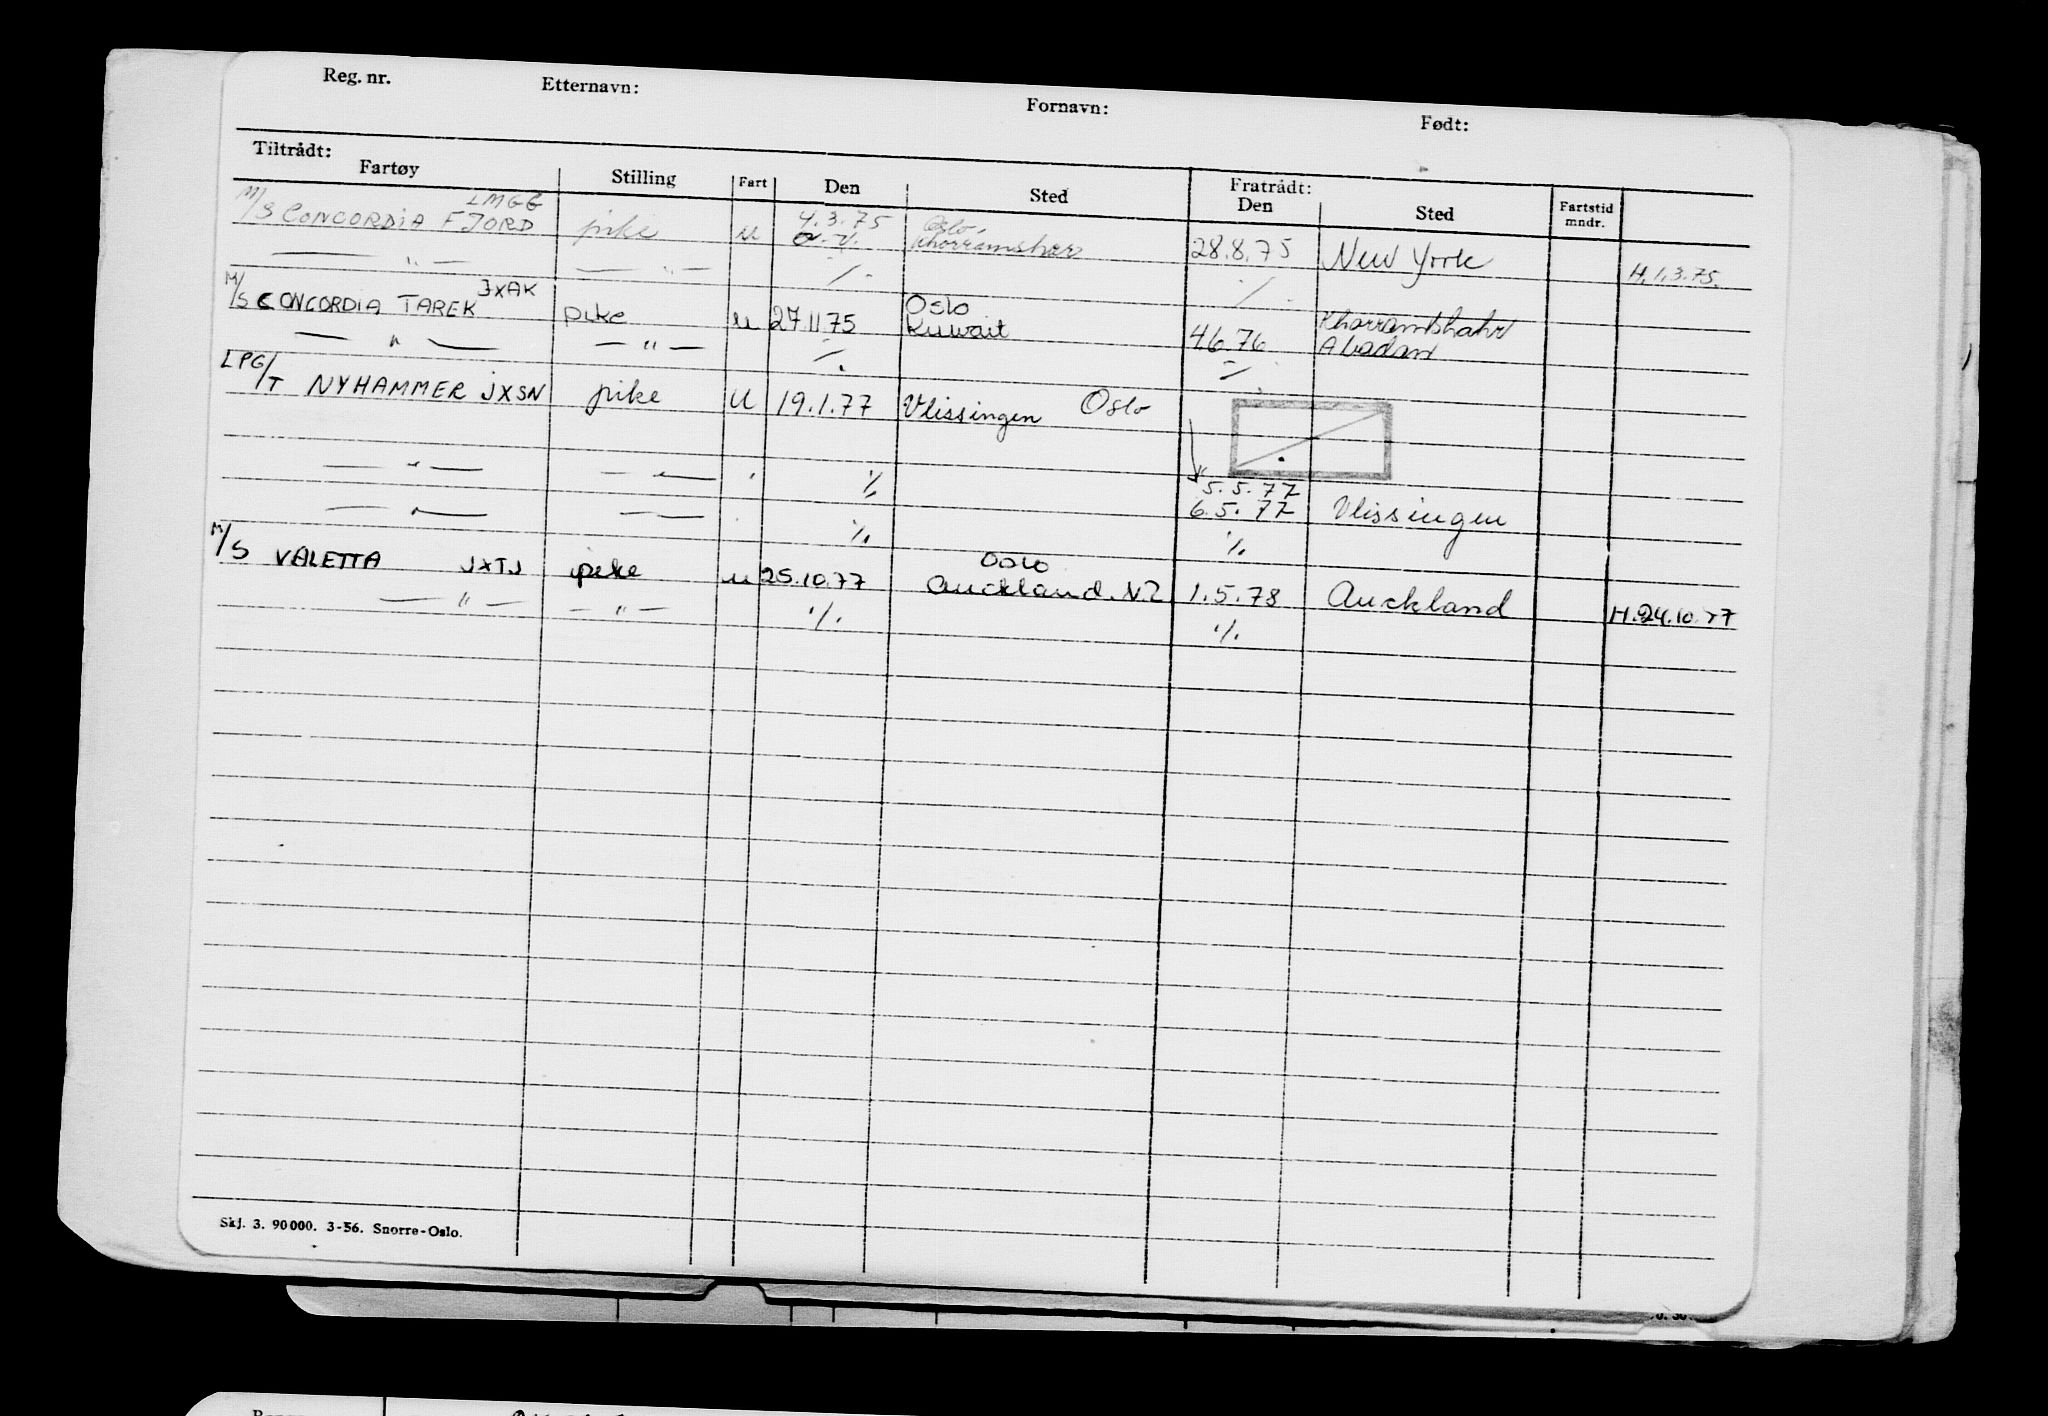 Reg. nr. Etternavn: Fornavn: Født:
Tiltrådt: Fratrådt:
Fartøy Stilling Fart Den Sted Den Sted Fartstid mndr.
LMGG 4.3.75 Oslo,
M/S CONCORDIA FJORD pike u Khorramshar 28.8.75 New York
— " — — " — ·/· ·/· H.1.3.75.
JXAK Oslo
M/S CONCORDIA TAREK pike u 27.11.75 Kuwait 4.6.76 Khorramshahr
— " — — " — ·/· Abadan
·/·
LPG/T NYHAMMER JXSN pike u 19.1.77 Vlissingen Oslo
— " — — " — " ·/· 5.5.77
6.5.77 Vlissingen
— " — — " — ·/· ·/·
OSLO
M/S VALETTA JXTJ pike u 25.10.77 Auckland. N.Z 1.5.78 Auckland H.24.10.77
— " — — " — ·/· ·/·
Skj. 3. 90000. 3-56. Snorre-Oslo.